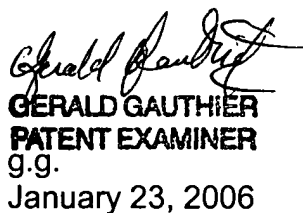 Gerald Gauthier
GERALD GAUTHIER
PATENT EXAMINER
g.g.
January 23, 2006